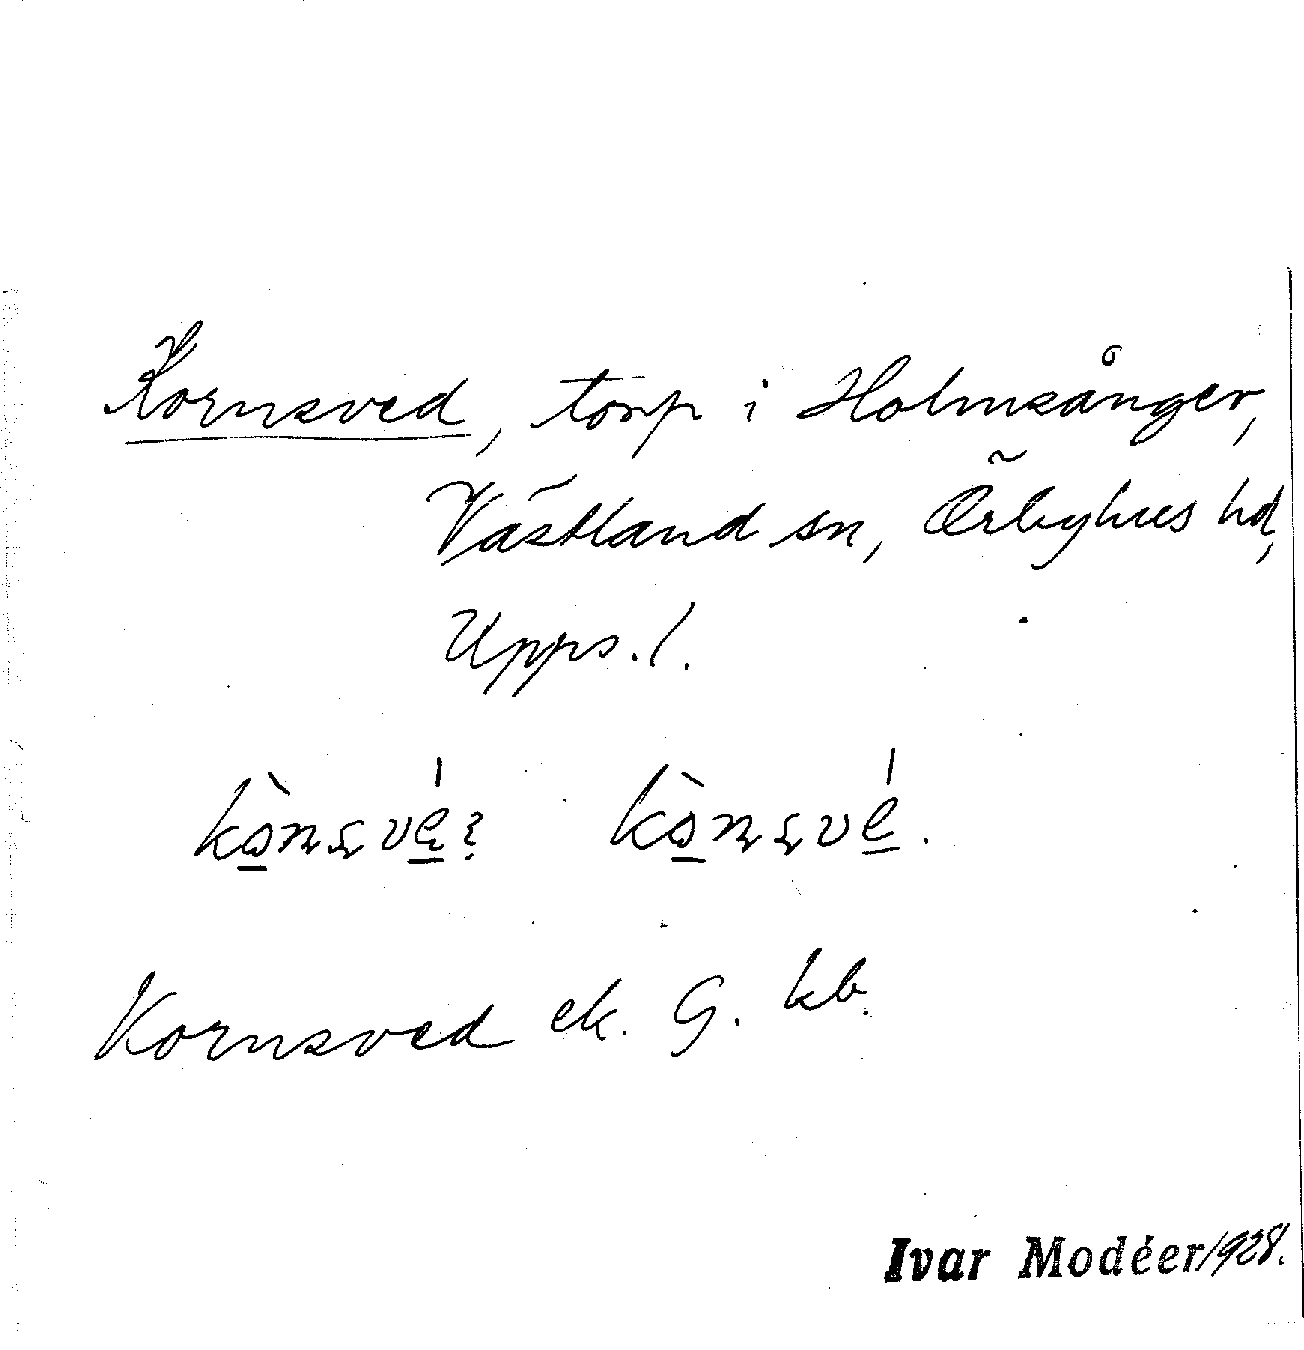 Kornsved, torp i Holmsånger,
Västland sn, Örbyhus hd,
Upps. l.
Kornsved ek. G. kb.
Ivar Modéer 1928.